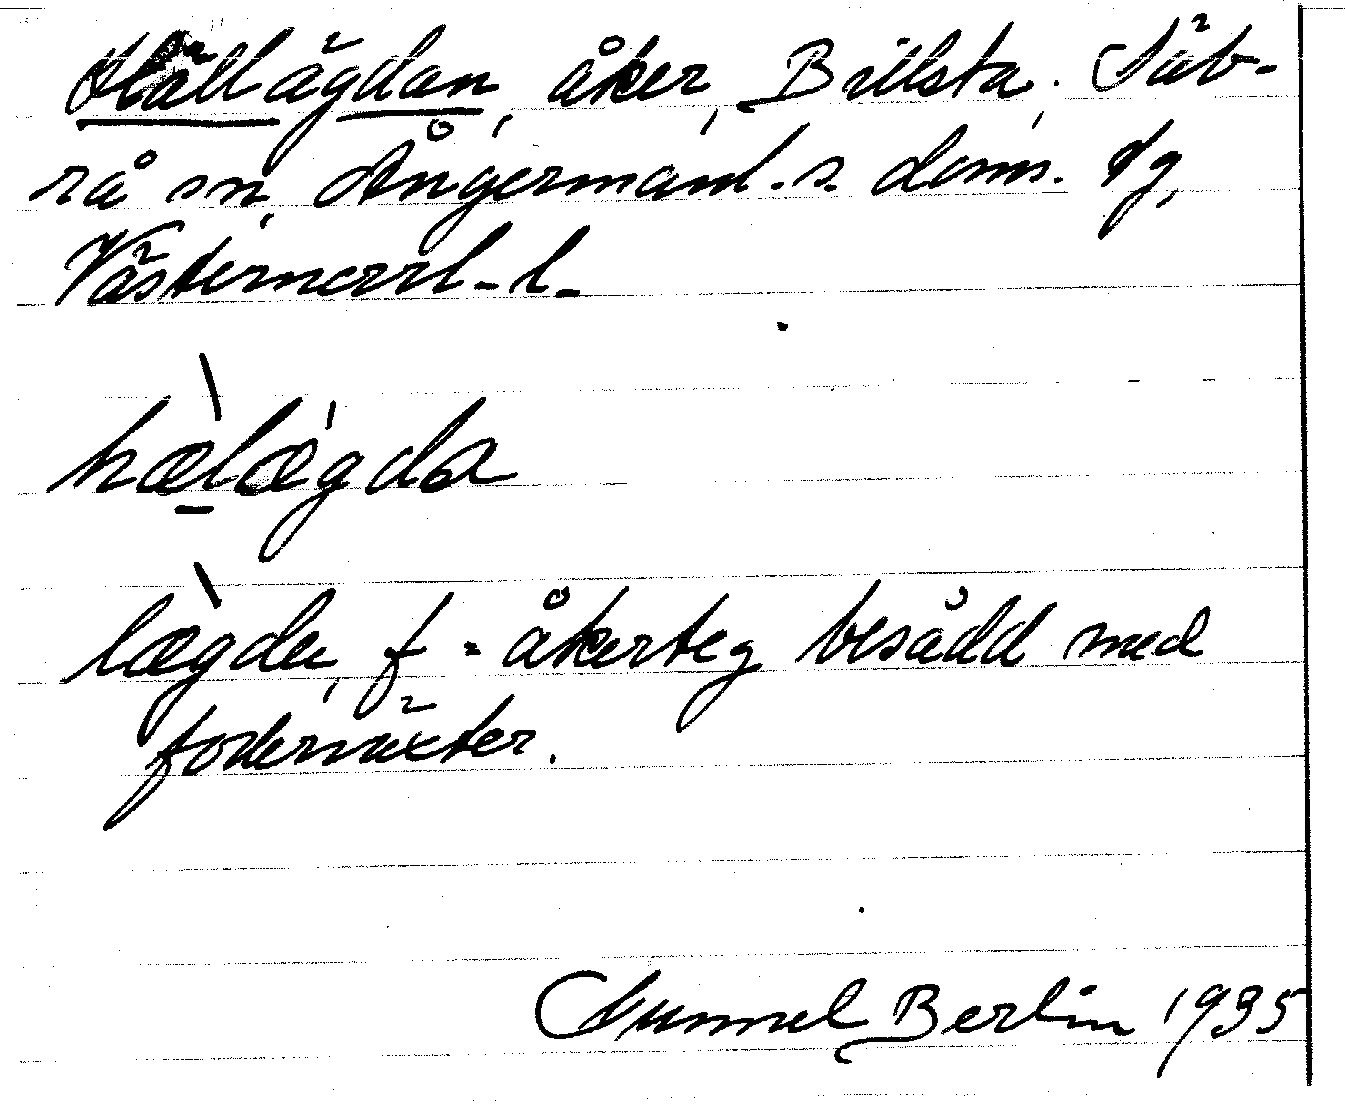 Hällägdan, åker, Billsta, Säb-
rå sn, Ångermanl. s. doms. dg,
Västernorrl. l.
hælægda
lægde, f = åkerteg besådd med
foderväxter.
Gunnel Berlin 1935